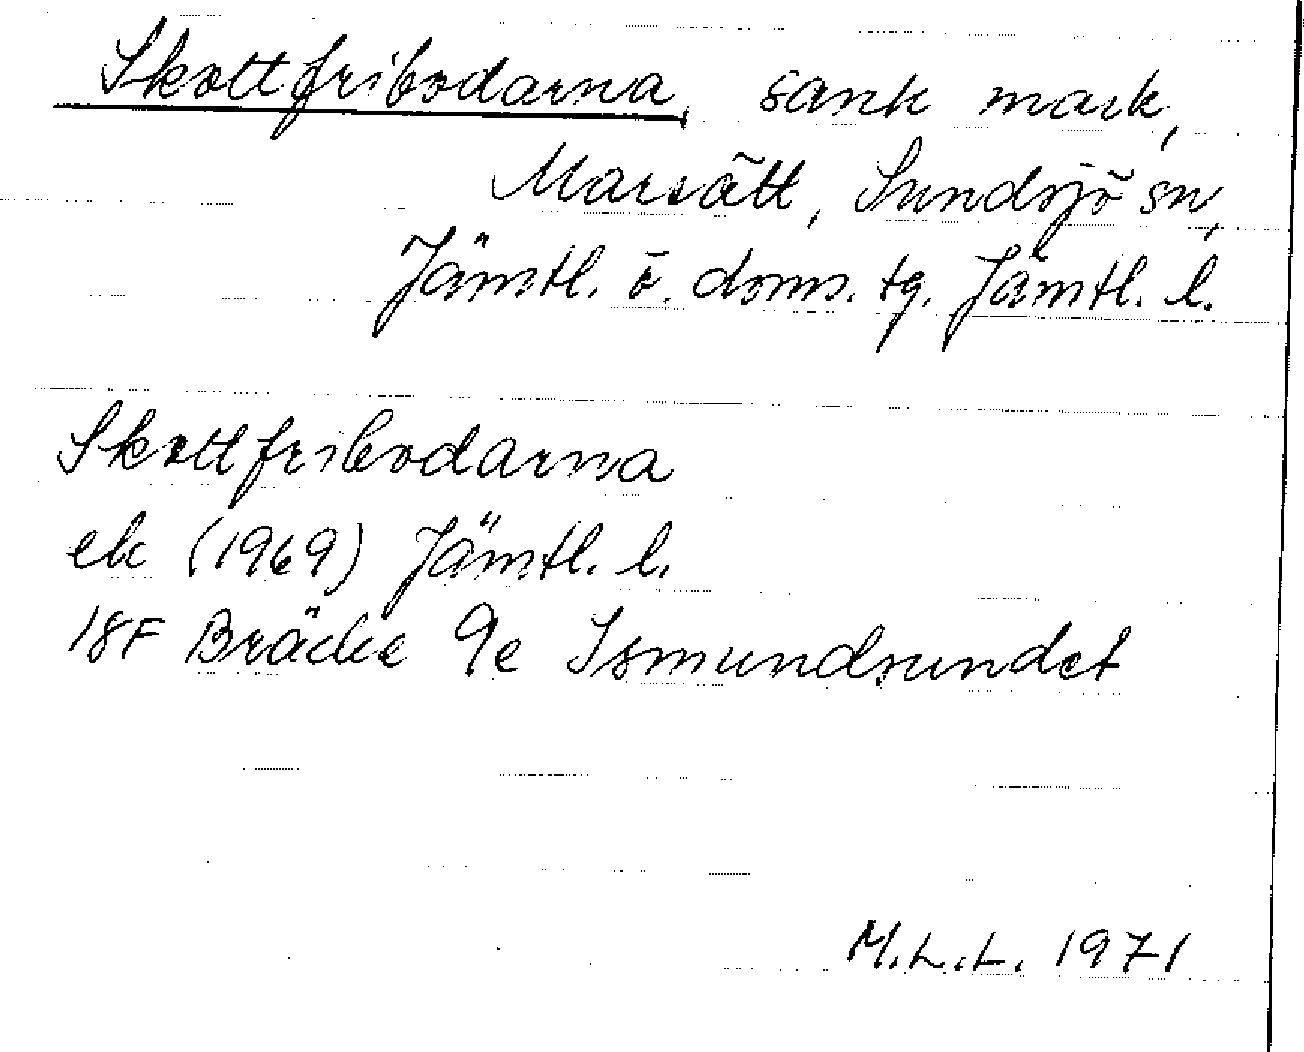 Skottfribodarna, sank mark,
Marsätt, Sundsjö sn,
Jämtl. ö. doms. tg. Jämtl. l.
Skottfribodarna
ek (1969) Jämtl. l.
18F Bräcke 9e Ismundsundet
M.L.L. 1971